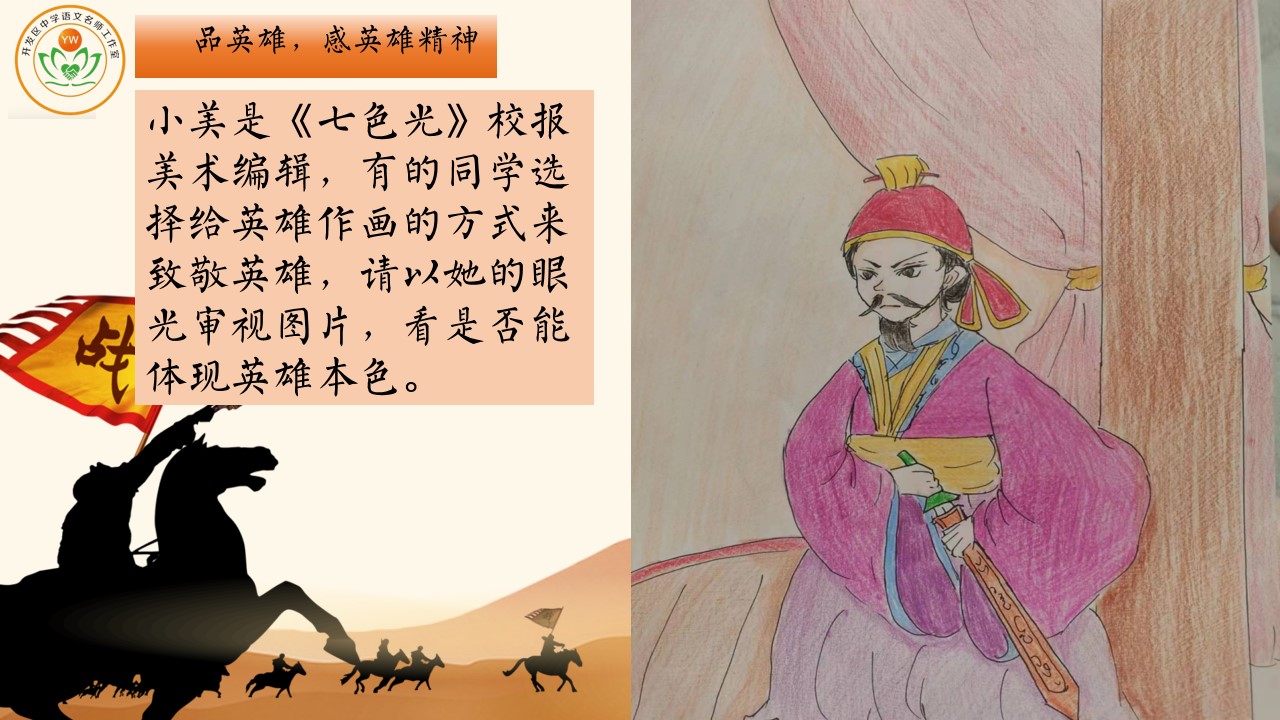 开发区中学语文名师工作室
YW
品英雄，感英雄精神
小美是《七色光》校报
美术编辑，有的同学选
择给英雄作画的方式来
致敬英雄，请以她的眼
光审视图片，看是否能
体现英雄本色。
战